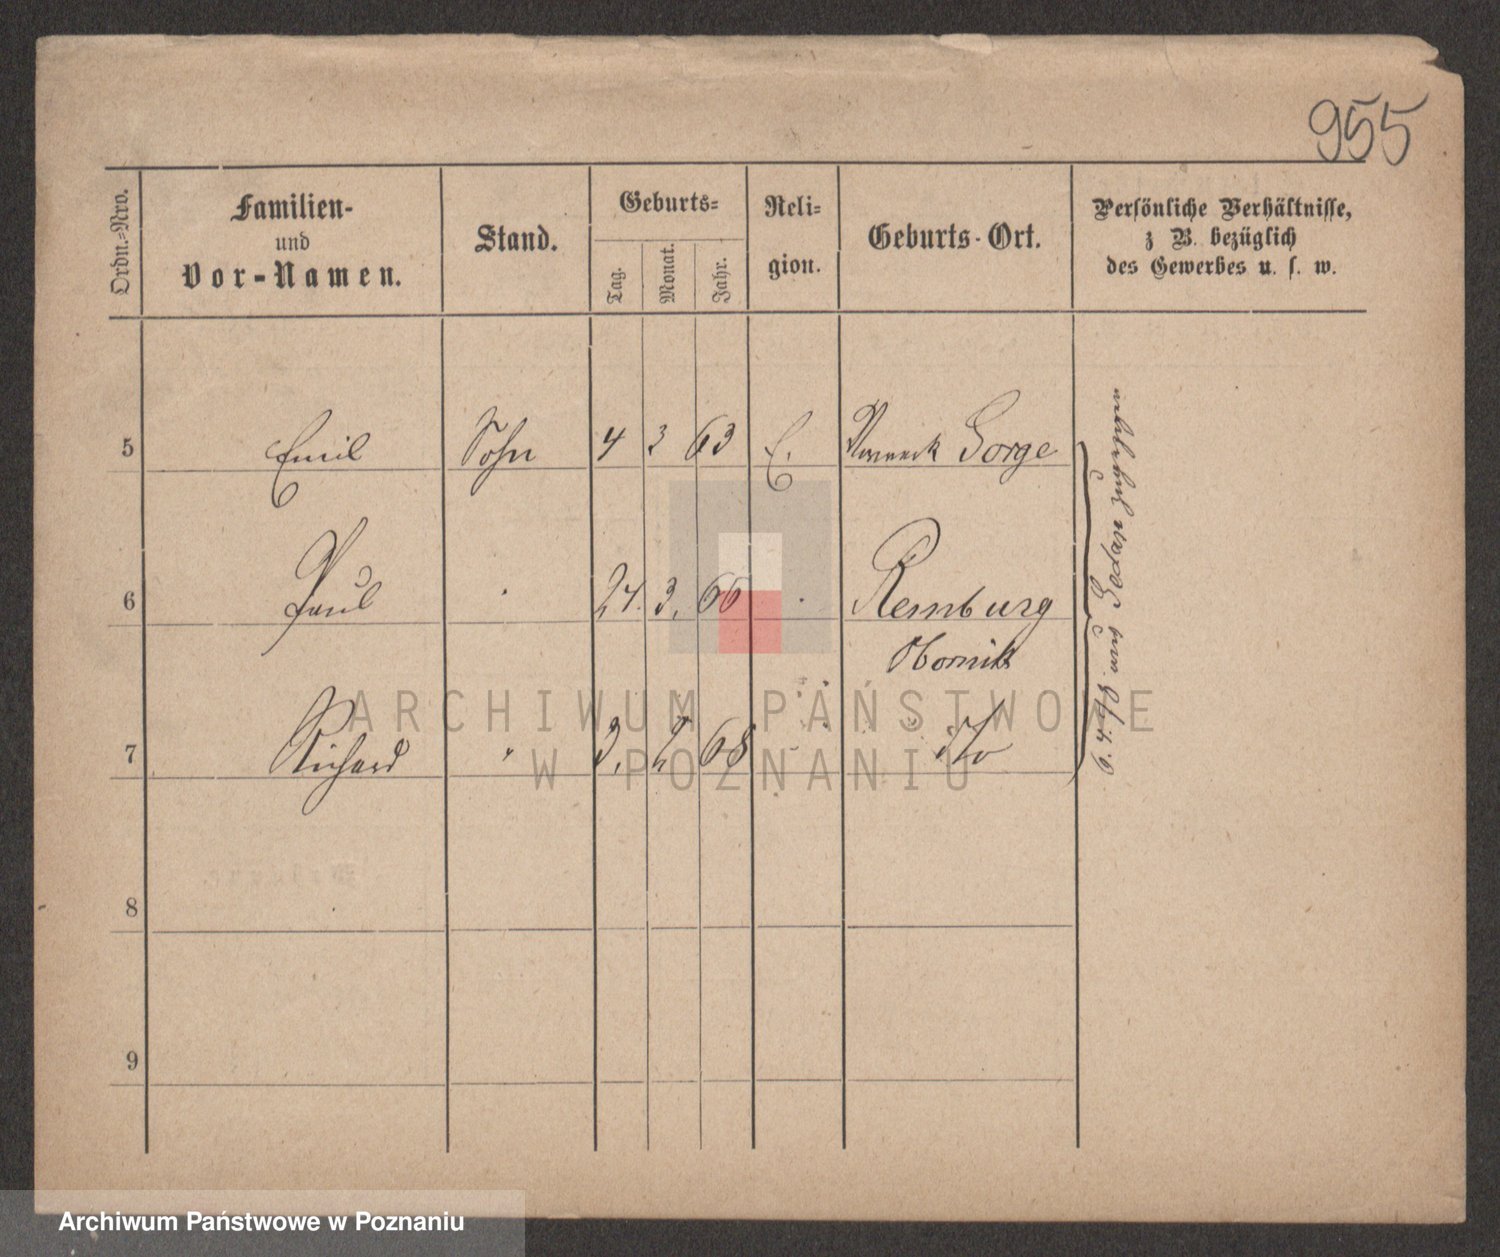 955
Ordn.-Nro.
Familien-
und
Vor-Namen.
Stand.
Geburts-
Tag.
Monat.
Jahr.
Reli-
gion.
Geburts-Ort.
Persönliche Verhältnisse,
z B. bezüglich
des Gewerbes u. s. w.
5 Emil Sohn 4 3 63 E. Gorge
6 Paul " 24. 3. 66 " Remburg
Obornik
7 Richard " 3. 2 68 " dto
6. 4. 78 aus zugezogen
8
9
ARCHIWUM PAŃSTWOWE
W POZNANIU
Archiwum Państwowe w Poznaniu